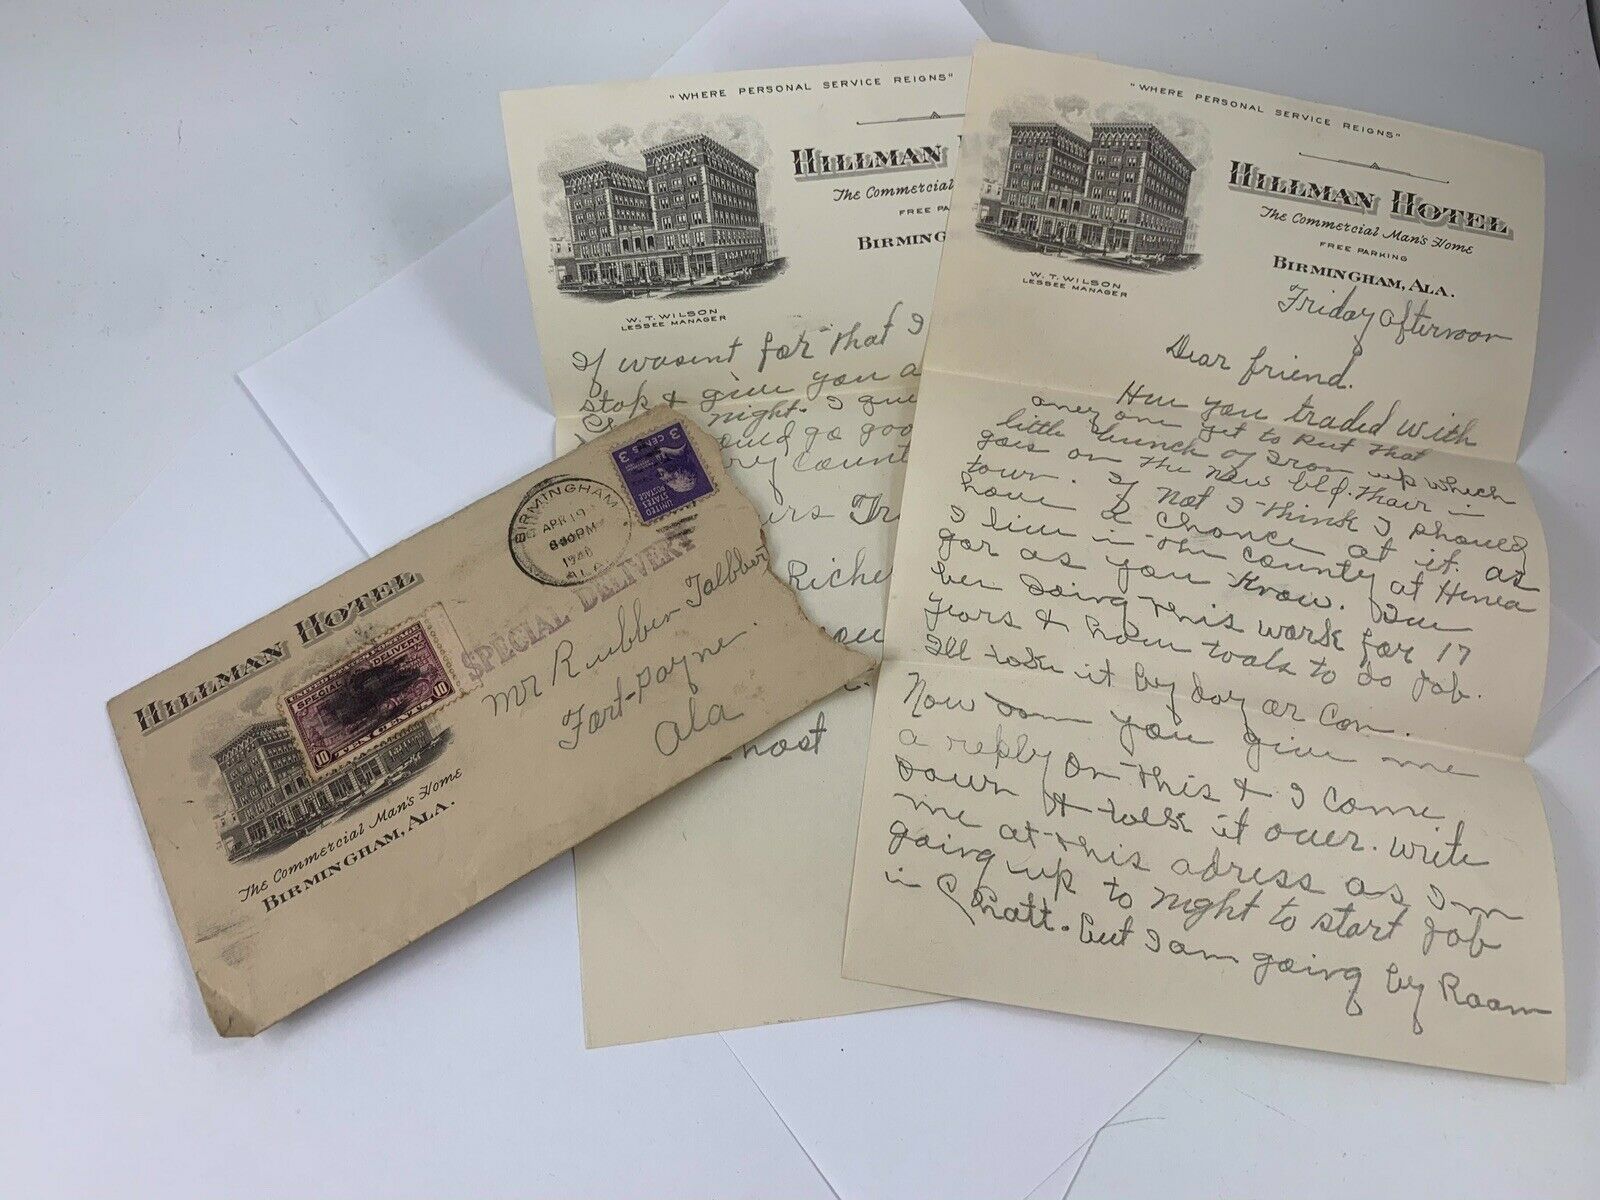 "WHERE PERSONAL SERVICE REIGNS"
HILLMAN HOTEL
The Commercial Man's Home
FREE PARKING
BIRMINGHAM, ALA.
W. T. WILSON
LESSEE MANAGER
Friday afternoon
Dear friend.
Hve you traded with
aney one yet to Put that
little bunch of Iron up which
gois on the New bld. thair in
town. If Not I think I should
have a chance at it. as
I live in the county at
far as you know. Ive
ben doing this work for 17
years & have tools to do job.
Ill take it by day or Con.
Now you give me
a reply on this & I come
down & talk it over. Write
me at this adress as I-m
going up to night to start job
in Chatt. But I am going by Room
"WHERE PERSONAL SERVICE REIGNS"
HILLMAN
The Commercial
FREE PA
BIRMING
W. T. WILSON
LESSEE MANAGER
If wasent for that I
stop & give you a
night. I
ould go goo
ry count
urs Tr
Riche
ou
host
3 CENTS 3
UNITED STATES POSTAGE
BIRMINGHAM
APR 19
8 30 PM
ALA
SPECIAL DELIVERY
HILLMAN HOTEL
SPECIAL DELIVERY
10 TEN CENTS 10
The Commercial Man's Home
BIRMINGHAM, ALA.
Mr Rubben Talbbert
Fort-Payne.
Ala